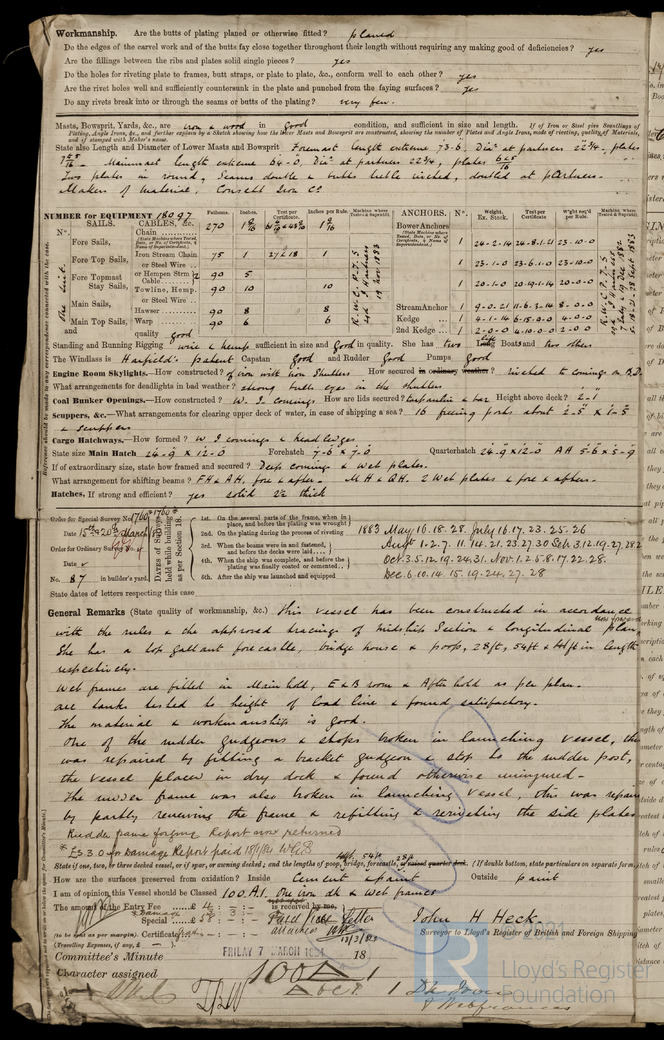 Workmanship. Are the butts of plating planed or otherwise fitted? planed
Do the edges of the carvel work and of the butts fay close together throughout their length without requiring any making good of deficiencies? yes
Are the fillings between the ribs and plates solid single pieces? yes
Do the holes for riveting plate to frames, butt straps, or plate to plate, &c., conform well to each other? yes
Are the rivet holes well and sufficiently countersunk in the plate and punched from the faying surfaces? yes
Do any rivets break into or through the seams or butts of the plating? very few.
Masts, Bowsprit, Yards, &c., are iron & wood in Good condition, and sufficient in size and length. If of Iron or Steel give Scantlings of
Plating, Angle Irons, &c., and further explain by a Sketch showing how the Lower Masts and Bowsprit are constructed, showing the number of Plates and Angle Irons, mode of riveting, quality of Materials,
and if stamped with Maker's name.
State also Length and Diameter of Lower Masts and Bowsprit Foremast length extreme 73-6, Diar at partners 22 3/4, plates
Mainmast length extreme 64-0, Diar at partners 22 3/4, plates
Two plates in round, Seams double & butts treble riveted, doubled at partners.
Makers of Material, Consett Iron Co
NUMBER for EQUIPMENT 18097
SAILS. CABLES, &c. Fathoms. Inches. Test per Certificate. Inches per Rule. Machine where Tested & Suprintdt. ANCHORS. No. Weight. Ex. Stock. Test per Certificate W'ght req'd per Rule. Machine where Tested & Suprintdt.
Fore Sails, Chain 270 1 9/16 1 9/16 Bower Anchors 1 24-2-14 24-8-1-21 23-10-0
Fore Top Sails, Iron Stream Chain 75 1 1 1 23-1-0 23-6-1-0 23-10-0
or Steel Wire
Fore Topmast Stay Sails, or Hempen Strm Cable 90 5 1 20-1-0 20-19-1-14 20-0-0
Towline, Hemp. 90 10 10
or Steel Wire
Main Sails, Hawser 90 8 8 Stream Anchor 1 9-0-21 11-6-3-14 8-0-0
Main Top Sails, Warp 90 6 6 Kedge 1 4-1-14 6-15-0-0 4-0-0
and quality good 2nd Kedge 1 2-0-0 4-10-0-0 2-0-0
Standing and Running Rigging wire & hemp sufficient in size and Good in quality. She has two Life Boats and two others
The Windlass is Harfield's patent Capstan good and Rudder Good Pumps Good
Engine Room Skylights.—How constructed? of iron with iron Shutters How secured in ordinary weather? riveted to comings on B.D.
What arrangements for deadlights in bad weather? strong bulls eyes in the shutters
Coal Bunker Openings.—How constructed? W. I comings How are lids secured? tarpaulin & bar Height above deck? 2-1
Scuppers, &c.—What arrangements for clearing upper deck of water, in case of shipping a sea? 16 freeing ports about 2-5 x 1-5
& scuppers
Cargo Hatchways.—How formed? W I comings & head ledges
State size Main Hatch 24-9 x 12-0 Forehatch 7-6 x 7-0 Quarterhatch 24-9 x 12-0 AH 5-6 x 5-9
If of extraordinary size, state how framed and secured? Deep comings & web plates.
What arrangement for shifting beams? FH & AH, fore & after. MH & QH. 2 Web plates & fore & afters.
Hatches. If strong and efficient? yes solid 2 1/2 thick
Order for Special Survey No. 1760
Date 15th & 20th March
Order for Ordinary Survey No.
Date
No. 87 in builder's yard.
Dates of Surveys held while building as per Section 18.
1st. On the several parts of the frame, when in place, and before the plating was wrought
2nd. On the plating during the process of riveting
3rd. When the beams were in and fastened, and before the decks were laid....
4th. When the ship was complete, and before the plating was finally coated or cemented..
5th. After the ship was launched and equipped
1883 May. 16. 18. 28. July 16. 17. 23. 25. 26
Augt 1. 2. 7. 11. 14. 21. 23. 27. 30 Sep 3. 12. 19. 27. 28
Oct. 3. 5. 12. 19. 24. 31. Nov. 1. 2. 5. 8. 17. 22. 28.
Dec. 6. 10. 14. 15. 19. 24. 27. 28
State dates of letters respecting this case
General Remarks (State quality of workmanship, &c.) This vessel has been constructed in accordance
with the rules & the approved tracings of midship Section & longitudinal plan,
She has a top gallant forecastle, bridge house & poop, 28ft, 54ft & 44ft in length
respectively.
Web frames are fitted in Main hold, E & B room & After hold as per plan.
are tanks tested to height of load line & found satisfactory.
The material & workmanship is good.
One of the rudder gudgeons & stops broken in launching vessel, this
was repaired by fitting a bracket gudgeon & stop to the rudder post,
the vessel placed in dry dock & found otherwise uninjured.
The rudder frame was also broken in launching vessel, this was repaired
by partly renewing the frame & refitting & reriveting the side plates
Rudder frame forging Report now returned
* £3.3.0 for Damage Report paid
State if one, two, or three decked vessel, or if spar, or awning decked; and the lengths of poop, bridge, forecastle, or raised quarter deck. (If double bottom, state particulars on separate form.)
44ft, 54ft 28ft
How are the surfaces preserved from oxidation? Inside Cement & paint Outside paint
I am of opinion this Vessel should be Classed 100.A1. One iron dk & Web frames
The amount of the Entry Fee £ 4 : - : - is received by me,
Special
Certificate
(to be sent as per margin).
(Travelling Expenses, if any, £ - ).
John H Heck.
Surveyor to Lloyd's Register of British and Foreign Shipping
Committee's Minute FRIDAY 7 MARCH 1884 18
Character assigned 100A 1
1 Dk Iron
& Webframes
Lloyd's Register
Foundation